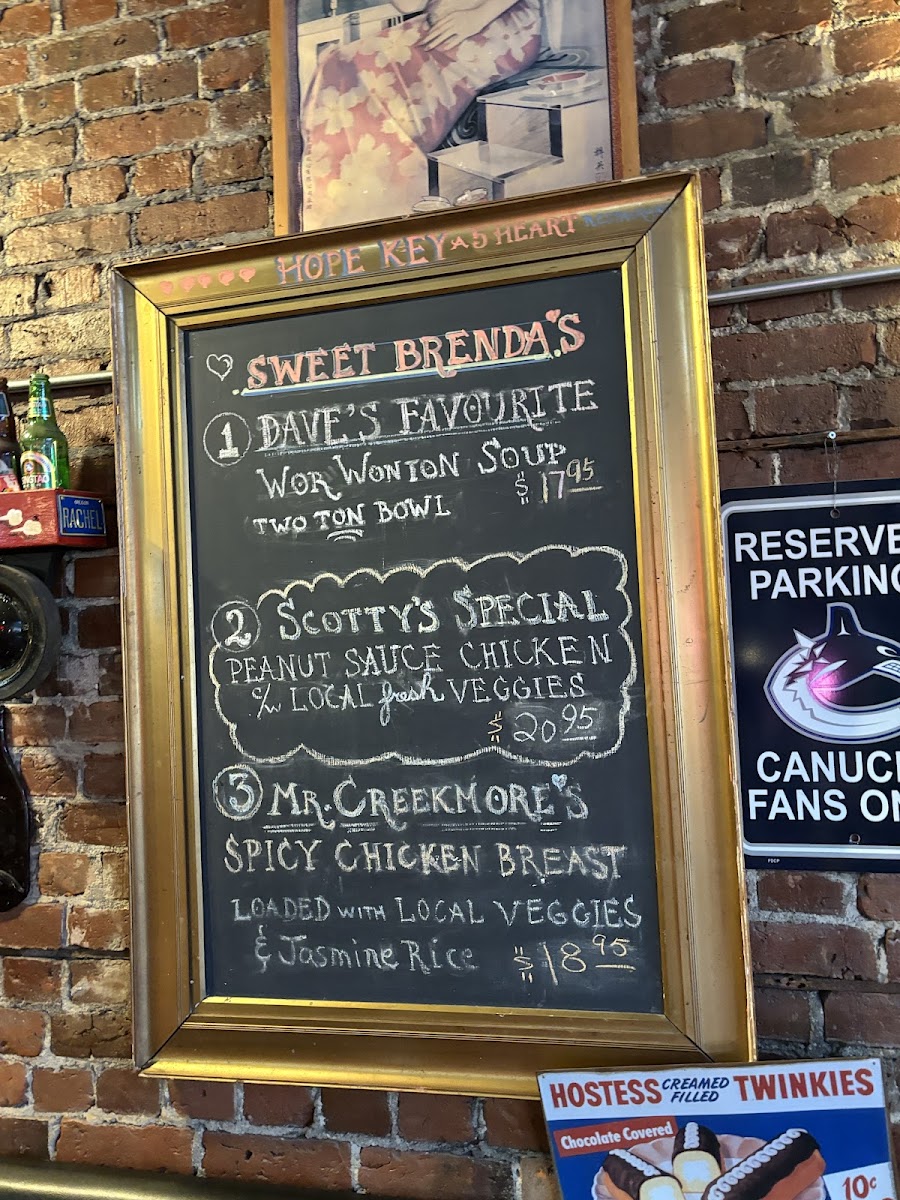 HOPE KEY AS HEART
SWEET BRENDA'S
1 DAVE'S FAVOURITE
WOR WONTON SOUP
$17.95
TWO TON BOWL
2 SCOTTY'S SPECIAL
PEANUT SAUCE CHICKEN
c/w LOCAL fresh VEGGIES
$20.95
3 MR. CREEKMORE'S
SPICY CHICKEN BREAST
LOADED WITH LOCAL VEGGIES
& Jasmine Rice $18.95
RACHEL
RESERVE
PARKING
CANUC
FANS ON
HOSTESS CREAMED FILLED TWINKIES
Chocolate Covered
10¢